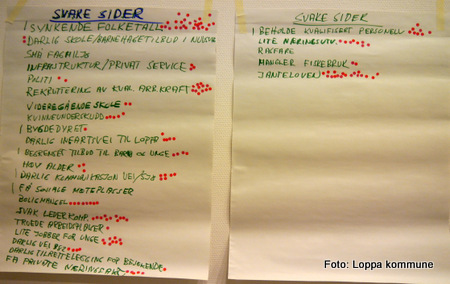 SVAKE SIDER
1 SYNKENDE FOLKETALL
DARLIG SKOLE/BARNEHAGETILBUD I
SMÅ FAGMILJØ
INFRASTRUKTUR/PRIVAT SERVICE
REKRUTTERING AV KVAL. ARB.KRAFT
VIDEREGÅENDE SKOLE
KVINNEUNDERSKUDD
1 BYGDEDYRET
DARLIG INNFARTSVEI TIL LOPPA
1 BEGRENSET TILBUD TIL BARN OG UNGE
HØY ALDER
1 DARLIG KOMMUNIKASJON VEI/SJØ
1 FÅ SOSIALE MØTEPLASSER
BOLIGMANGEL
SVAK LEDERKOMP.
TRUEDE ARBEIDSPLASSER
LITE JOBBER FOR UNGE
DARLIG VEI
DARLIG TILRETTELEGGING FOR
FÅ PRIVATE
SVAKE SIDER
1 BEHOLDE KVALIFISERT PERSONELL
LITE NÆRINGSUTV.
MANGLER FISKEBRUK
JANTELOVEN
Foto: Loppa kommune